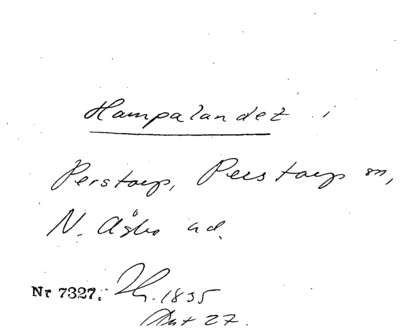 Hampalandet i
Perstorp, Perstorp sn,
N. Åsbo hd.
Nr 7327. 1835
27.